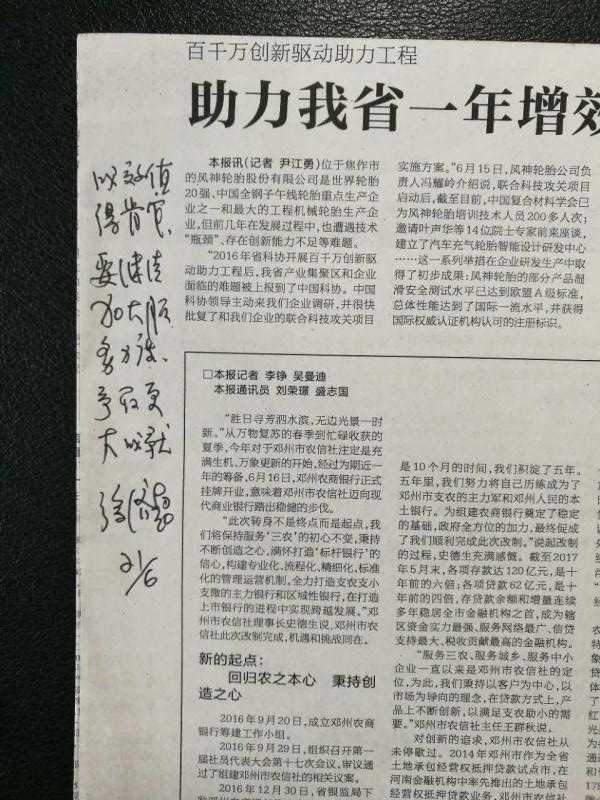 百千万创新驱动助力工程
助力我省一年增效
本报讯（记者 尹江勇）位于焦作市
的风神轮胎股份有限公司是世界轮胎
20强、中国全钢子午线轮胎重点生产
企业之一和最大的工程机械轮胎生产企
业，但前几年在发展过程中，也遭遇技术
“瓶颈”、存在创新能力不足等难题。
“2016年省科协开展百千万创新
驱动助力工程后，我省产业集聚区和企业
面临的难题被上报到了中国科协。中国
科协领导主动来我们企业调研，并很快
批复了和我们企业的联合科技攻关项目
实施方案。”6月15日，风神轮胎公司负
责人冯耀岭介绍说，联合科技攻关项目
启动后，截至目前，中国复合材料学会已
为风神轮胎培训技术人员200多人次；
邀请叶声华等14位院士专家前来座谈，
建立了汽车充气轮胎智能设计研发中心
……这一系列举措在企业研发生产中取
得了初步成果：风神轮胎的部分产品湿
滑安全测试水平已达到欧盟A级标准，
总体性能达到了国际一流水平，并获得
国际权威认证机构认可的注册标识。
成效值
得肯定，
要继续
加大服
务力度，
争取更
大成就
21/6
□本报记者 李铮 吴曼迪
本报通讯员 刘荣璟 盛志国
“胜日寻芳泗水滨，无边光景一时
新。”从万物复苏的春季到忙碌收获的
夏季，今年对于邓州市农信社注定是充
满生机、万象更新的开始，经过为期近一
年的筹备，6月16日，邓州农商银行正式
挂牌开业，意味着邓州市农信社迈向现
代商业银行踏出稳健的步伐。
“此次转身不是终点而是起点，我
们将保持服务‘三农’的初心不变，秉持
不断创造之心，满怀打造‘标杆银行’的
信心，构建专业化、流程化、精细化、标准
化的管理运营机制，全力打造支农支小
支微的主力银行和区域性银行，在打造
上市银行的进程中实现跨越发展。”邓州
市农信社理事长史德生说，邓州市农
信社此次改制完成，机遇和挑战同在。
新的起点：
回归农之本心 秉持创
造之心
2016年9月20日，成立邓州农商
银行筹建工作小组。
2016年9月29日，组织召开第一
届社员代表大会第十七次会议，审议通
过了组建邓州市农信社的相关议案。
2016年12月30日，省银监局下
是10个月的时间，我们积淀了五年。
五年里，我们努力将自己历练成为了
邓州市支农的主力军和邓州人民的本
土银行。为组建农商银行奠定了稳定
的基础，政府全方位的加力，最终促成
了我们顺利完成此次改制。”说起改制
的过程，史德生充满感慨。截至2017
年5月末，各项存款达120亿元，是十
年前的六倍；各项贷款62亿元，是十
年前的四倍，存贷款余额和增量连续
多年稳居全市金融机构之首，成为辖
区资金实力最强、服务网络最广、信贷
支持最大、税收贡献最高的金融机构。
“服务三农、服务城乡、服务中小
企业一直以来是邓州市农信社的定
位，为此，我们秉持以客户为中心，以
市场为导向的理念，在贷款方式上，产
品上不断创新，以满足支农助小的需
要。”邓州市农信社主任王群秋说。
对创新的追求，邓州市农信社从
未停歇过。2014年邓州市作为全省
土地承包经营权抵押贷款试点市，在
河南金融机构中率先推出的土地承包
经营权抵押贷款业务，邓州市农信社